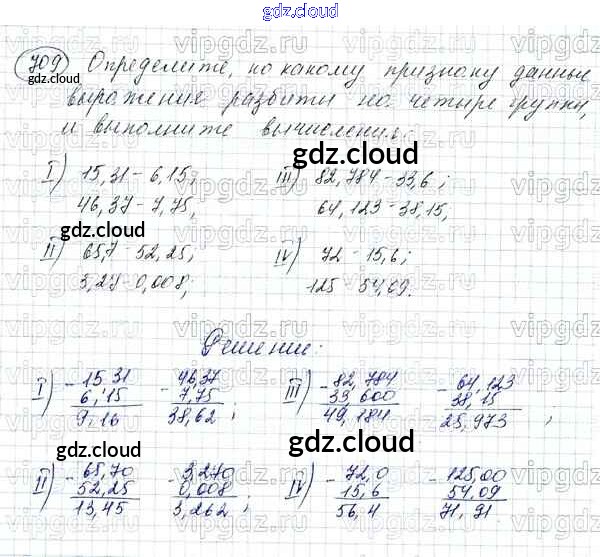 gdz.cloud
709 Определите, по какому признаку данные
gdz.cloud
выражения разбиты на четыре группы,
и выполните вычисления.
gdz.cloud
I) 15,31 - 6,15; III) 82,784 - 33,6;
46,37 - 7,75, 64,123 - 38,15,
gdz.cloud
II) 65,7 - 52,25; IV) 72 - 15,6;
3,27 - 0,008; 125 - 54,09.
gdz.cloud
Решение:
I) - 15,31 - 46,37 III) - 82,784 - 64,123
6,15 7,75 33,600 38,15
9,16 38,62 ; 49,184 25,973 ,
gdz.cloud
gdz.cloud
II) - 65,70 - 3,270 IV) - 72,0 - 125,00
52,25 0,008 15,6 54,09
13,45 3,262 ; 56,4 71,91
gdz.cloud